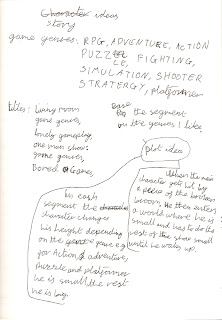 Character ideas
story
game genres: RPG, ADVENTURE, ACTION
PUZZLE, FIGHTING,
SIMULATION, SHOOTER
STRATERGY, platformer
titles: living room
game genres,
lonely gameplay,
one man show:
game genres,
Bored Games,
Base
the segment
on the genres I like.
plot idea
When the main
character gets hit by
a piece of the broken
broom, He then enters
a world where he is
small and has to do the
rest of the game small
until he wakes up.
in each
segment the character
character changes
his height depending
on the game e.g
for Action & adventure,
puzzle and platformer
he is small the rest
he is big.